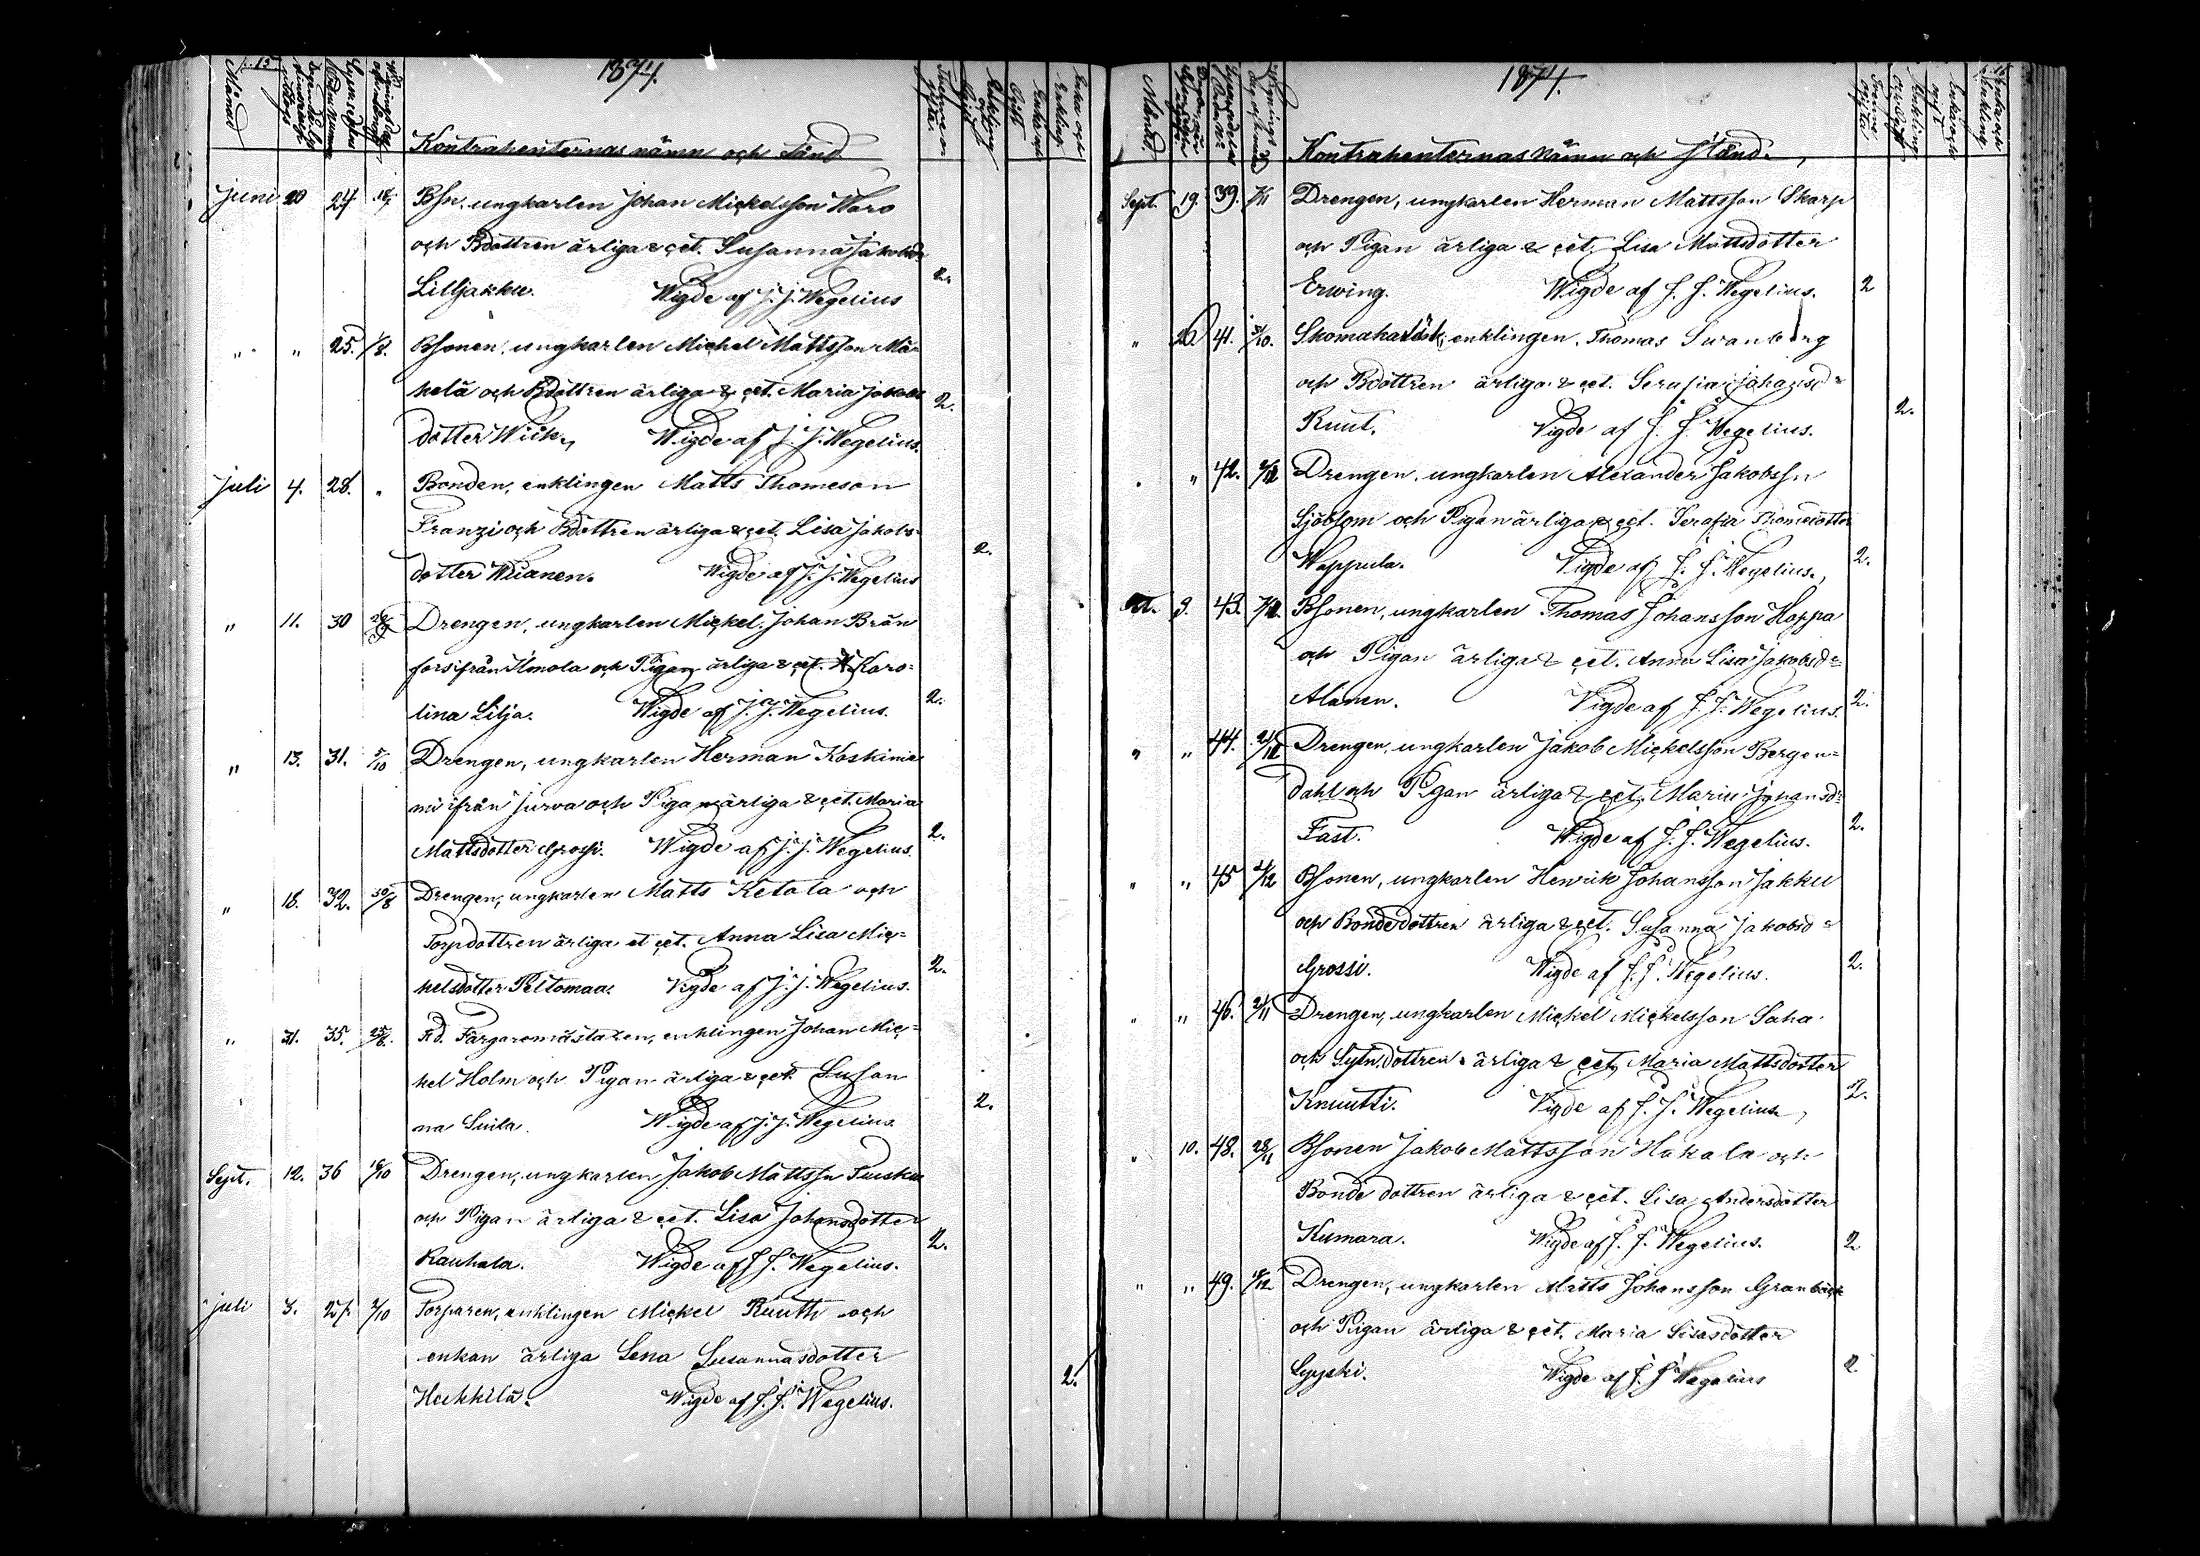 1874.
Kontrahenternas nämn och stånd
Juni 20 24 18/7 Bsn, ungkarlen Johan Mickelsson Waro
och Bdottren ärliga & çet. Susanna Jakobsd
Lilljakku. Wigde af J. J. Wegelius 2.
" " 25. 1/8. Bsonen, ungkarlen Mickel Mattsson Mä=
kelä och Bdottren ärliga & çet. Maria Jakobs 2.
dotter Wiik, Wigde af J. J. Wegelius.
Juli 4. 28. " Bonden, enklingen Matts Thomeson
Franzi och Bdottren ärliga & çet. Lisa Jakobs= 2.
dotter Wiianen. Wigde af J. J. Wegelius
" 11. 30 Drengen, ungkarlen Mickel Johan Brän
fors ifrån Ilmola och Pigan ärliga & çet. Karo=
lina Lilja. Wigde af J. J. Wegelius. 2.
" 13. 31. 5/10 Drengen, ungkarlen Herman Koskinie
mi ifrån Jurva och Pigan ärliga & çet. Maria
Mattsdotter Grossi. Wigde af J. J. Wegelius. 2.
" 18. 32. 30/8 Drengen, ungkarlen Matts Ketola och
Torpdottren ärliga et çet. Anna Lisa Mic=
kelsdotter Peltomaa. Wigde af J. J. Wegelius. 2.
" 31. 35. 25/8. Fd. Färgaremästaren, enklingen Johan Mic=
kel Holm och Pigan ärliga & çet. Susan
na Luila. Wigde af J. J. Wegelius. 2.
Sept. 12. 36 18/10 Drengen, ungkarlen Jakob Mattssn Tuisku
och Pigan ärliga & çet. Lisa Johansdotter
Rauhala. Wigde af J. J. Wegelius. 2.
Juli 3. 27. 2/10 Torparen, enklingen Mickel Ruuth och
enkan ärliga Lena Susannasdotter
Heikkilä. Wigde af J. J. Wegelius. 2.
1874.
Kontrahenternas Nämn och Stånd.
Sept. 19. 39. 7/11 Drengen, ungkarlen Herman Mattsson Skarp
och Pigan ärliga & çet. Lisa Mattsdotter
Erwing. Wigde af J. J. Wegelius. 2
" 26 41. 31/10. enklingen, Thomas Swanberg
och Bdottren ärliga & çet. Serafia Johansd=
Ruut. Wigde af J. J. Wegelius. 2.
" " 42. Drengen, ungkarlen Alexander Jakobssn
Sjöblom och Pigan ärliga & çet. Serafia Thomedotter
Wappula. Wigde af J. J. Wegelius. 2.
Okt. 9. 43. Bsonen, ungkarlen Thomas Johansson Hoppa
och Pigan ärliga & çet. Anna Lisa Jakobsd=
Alanen. Wigde af J. J. Wegelius. 2.
" " 44. Drengen, ungkarlen Jakob Mickelsson Bergen=
dahl och Pigan ärliga & çet. Maria Johansd=
Fast. Wigde af J. J. Wegelius. 2.
" " 45 Bsonen, ungkarlen Henrik Johansson Jakku
och Bondedottren ärliga & çet. Susanna Jakobsd=
Grossi. Wigde af J. J. Wegelius. 2.
" " 46. 21/11 Drengen, ungkarlen Mickel Mickelsson Saha
och Sytn.dottren ärliga & çet. Maria Mattsdotter
Knuutti. Wigde af J. J. Wegelius 2.
" 10. 48. 28/11 Bsonen Jakob Mattsson Hakala och
Bondedottren ärliga & çet. Lisa Andersdotter
Kumara. Wigde af J. J. Wegelius. 2
" " 49. 18/12 Drengen, ungkarlen Matts Johansson Granback
och Pigan ärliga & çet. Maria Lisasdotter
Wigde af J. J. Wegelius 2